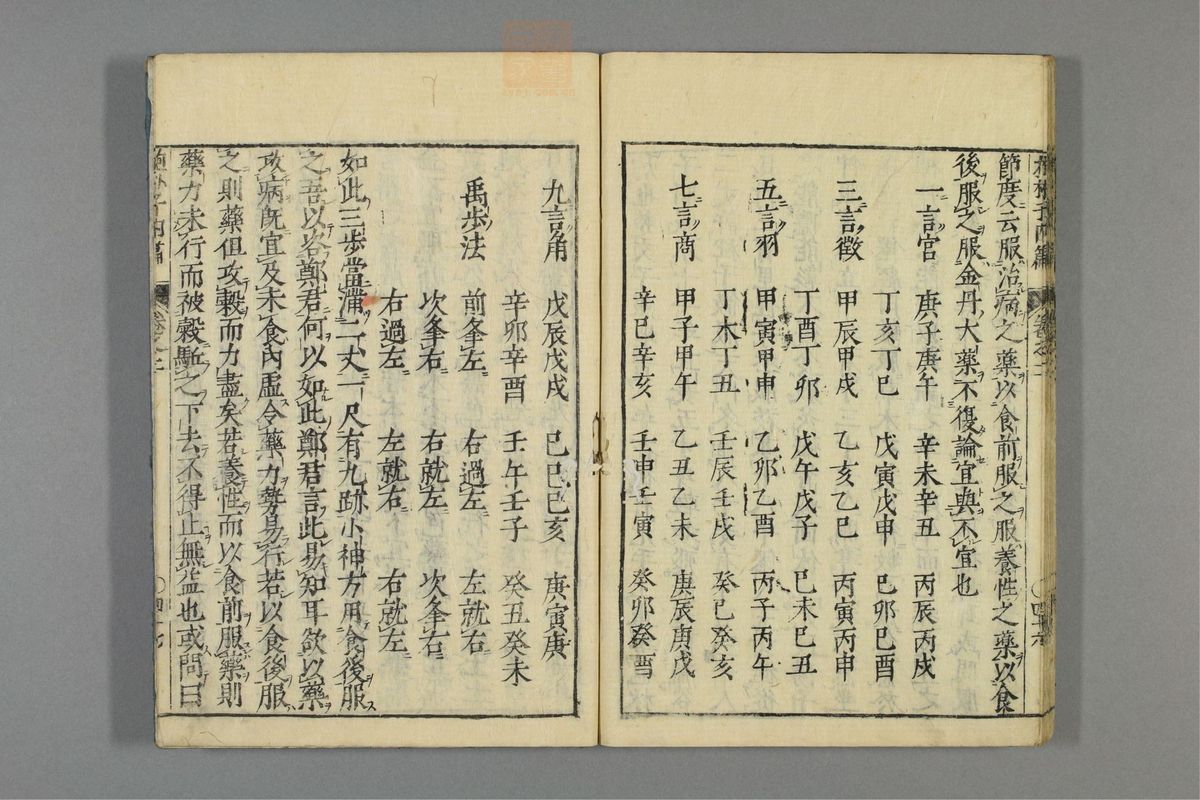 抱朴子内篇 卷之二 四十六
節度云服治病之藥以食前服之服養性之藥以食
後服之服金丹大藥不復論宜與不宜也
一言宮 庚子庚午 辛未辛丑 丙辰丙戌
丁亥丁巳 戊寅戊申 巳卯巳酉
三言徵 甲辰甲戌 乙亥乙巳 丙寅丙申
丁酉丁卯 戊午戊子 巳未巳丑
五言羽 甲寅甲申 乙卯乙酉 丙子丙午
丁未丁丑 壬辰壬戌 癸巳癸亥
七言商 甲子甲午 乙丑乙未 庚辰庚戌
辛巳辛亥 壬申壬寅 癸卯癸酉
九言角 戊辰戊戌 巳巳巳亥 庚寅庚
辛卯辛酉 壬午壬子 癸丑癸未
禹歩法 前夆左 右過左 左就右
次夆右 右就左 次夆右
右過左 左就右 右就左
如此三歩當滿二丈一尺有九跡小神方用食後服
之吾以咨鄭君何以如此鄭君言此易知耳欲以藥
攻病既宜及未食内虛令藥力勢易行若以食後服
之則藥但攻穀而力盡矣若養性而以食前服藥則
藥力未行而被穀駈之下去不得止無益也或問曰
抱朴子内篇 卷之二 四十七